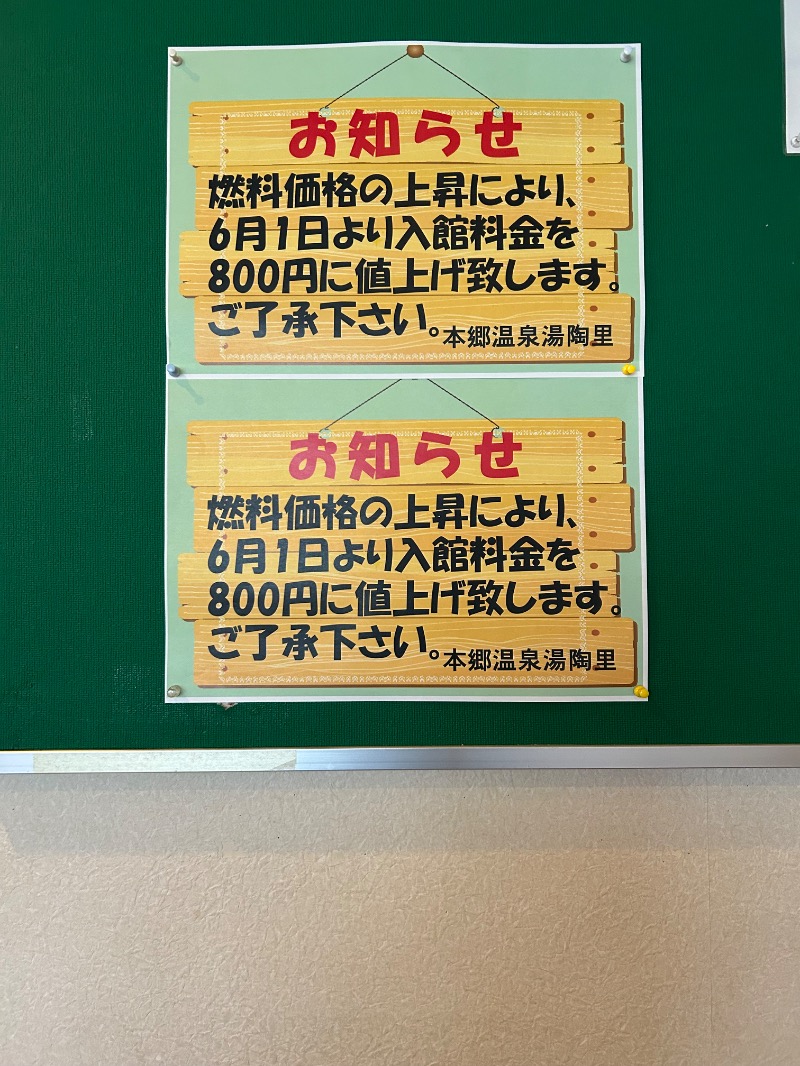 お知らせ
燃料価格の上昇により、
6月1日より入館料金を
800円に値上げ致します。
ご了承下さい。
本郷温泉湯陶里
お知らせ
燃料価格の上昇により、
6月1日より入館料金を
800円に値上げ致します。
ご了承下さい。
本郷温泉湯陶里